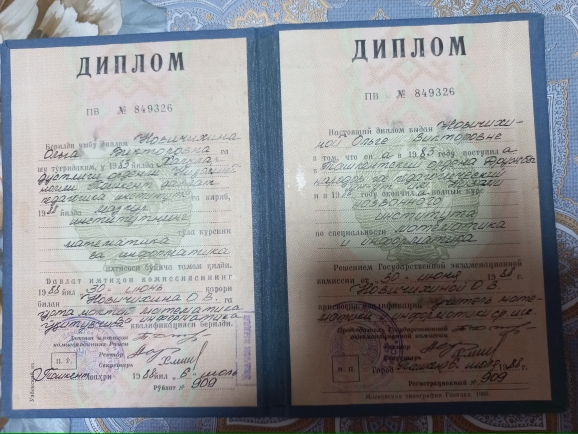 ДИПЛОМ
ПВ № 849326
Берилди ушбу диплом Новичихина
Ольга Викторовна га
шу тўғридаким, у 1983 йилда Халқлар
дўстлиги ордени
педагогика институтига кириб,
1988 йилда мазкур
институтнинг
тўла курсини
математика
ва информатика
ихтисоси бўйича тамом қилди.
Давлат имтиҳон комиссиясининг
1988 йил 30 июнь қарори
билан Новичихина О.В.
ўрта мактаб математика
ва информатика
квалификацияси берилди.
Ректор
Секретарь
Тошкент шаҳри 1988 йил
Рўйхат № 909
ДИПЛОМ
ПВ № 849326
Настоящий диплом выдан Новичихи-
ной Ольге Викторовне
в том, что она в 1983 году поступила в
Ташкентский ордена Дружбы
народов педагогический
институт
и в 1988 году окончила полный курс
названного
института
по специальности математика
и информатика
Решением Государственной экзаменационной
комиссии от 30 июня 1988 г.
Новичихиной О.В.
присвоена квалификация учитель мате-
матики и информатики
Председатель Государственной
экзаменационной комиссии
Ректор
Секретарь
М. П.
Город Ташкент 1988 г.
Регистрационный № 909
Московская типография Гознака.